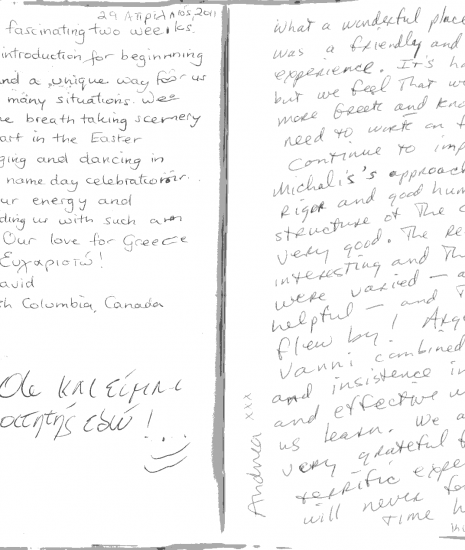 29 Απριλιος, 2011
fascinating two weeks.
introduction for beginning
and a unique way for us
many situations. We
breath taking scenery
art in the Easter
ging and dancing in
name day celebration
ur energy and
ding us with such a
Our love for Greece
Ευχαριστώ!
avid
h Columbia, Canada
και είμαι
εδώ!
what a wonderful place
was a friendly and
experience. It's ha
but we feel that w
more Greek and kno
need to work on
Continue to imp
Michalis's approach
Rigor and good hum
structure of the c
very good. The re
interesting and Th
were varied – a
helpful – and T
flew by! Arg
Vanni combined
and insistence in
and effective w
us learn. We a
very grateful f
terrific expe
will never fo
time h
Andrea xxx